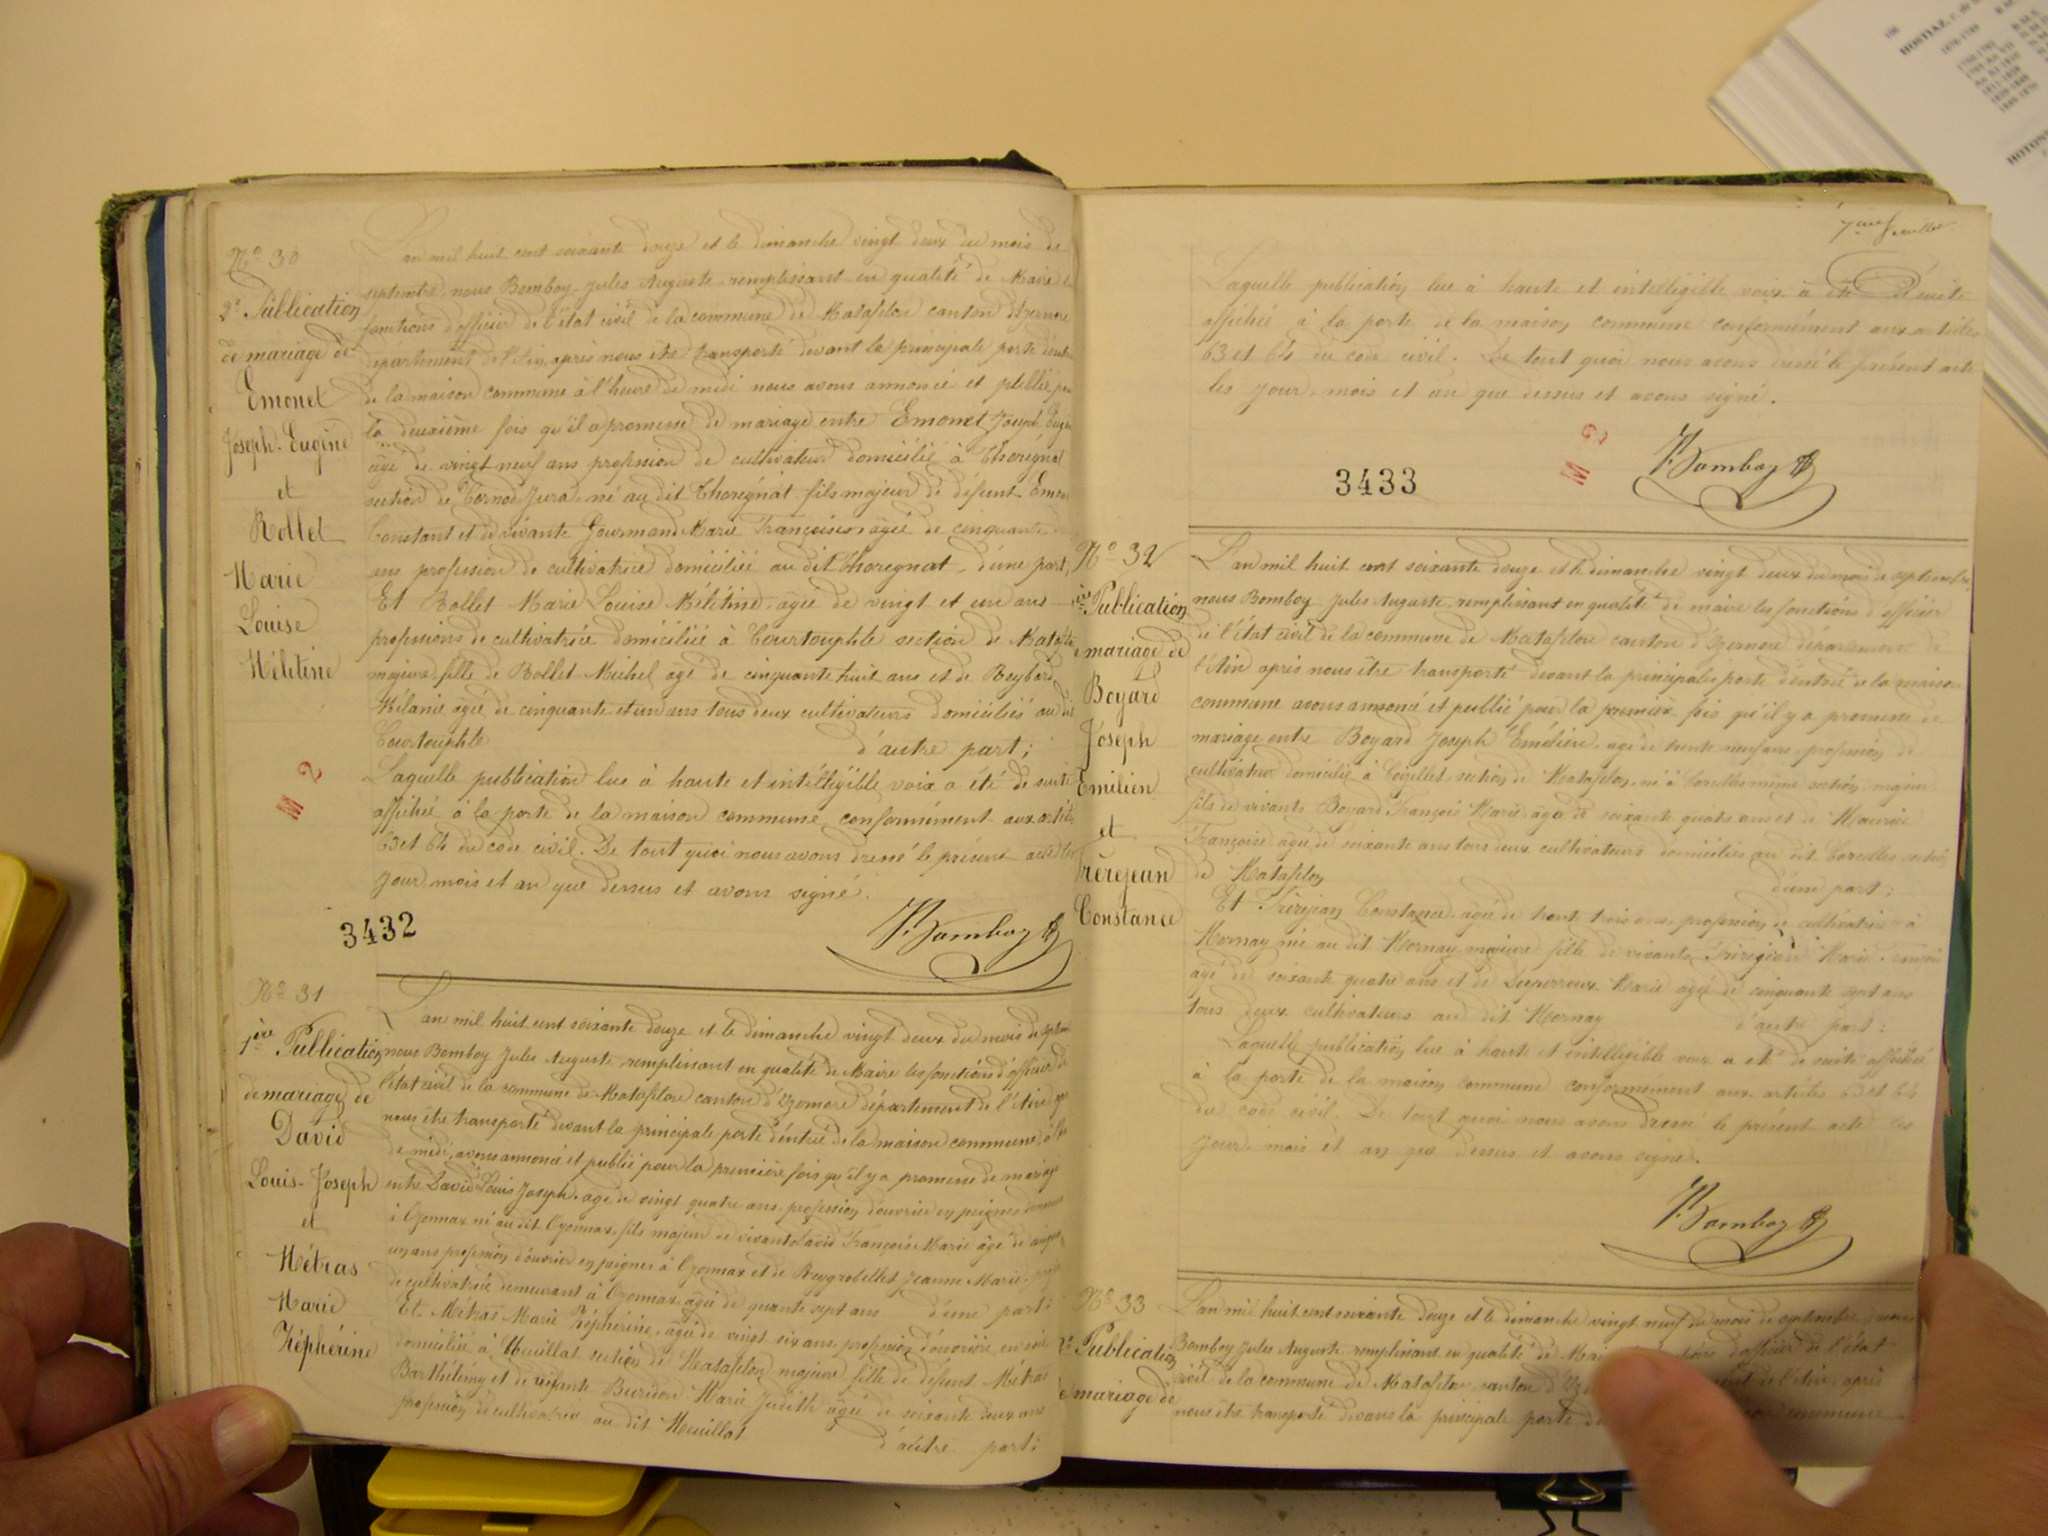 N° 30
2e Publication
de mariage de
Emonet
Joseph-Eugène
et
Rollet
Marie
Louise
Mélitine
L'an mil huit cent soixante douze et le dimanche vingt deux du mois de
septembre, nous Bomboy Jules Auguste remplissant en qualité de Maire les
fonctions d'officier de l'état civil de la commune de Matafelon canton d'Izernore
département de l'Ain, après nous être transporté devant la principale porte d'entrée
de la maison commune à l'heure de midi nous avons annoncé et publié pour
la deuxième fois qu'il a promesse de mariage entre Emonet Joseph Eugène
âgé de vingt neuf ans profession de cultivateur domicilié à Thorégnat
section de Cornod Jura, né au dit Thorégnat fils majeur de défunt Emonet
Constant et de vivante Gourmand Marie Françoise âgée de cinquante
ans profession de cultivatrice domiciliée au dit Thoregnat d'une part,
Et Rollet Marie Louise Mélitine âgée de vingt et un ans
professions de cultivatrice domiciliée à Courtouphle section de Matafelon
majeure fille de Rollet Michel âgé de cinquante huit ans et de Reybard
Mélanie âgée de cinquante et un ans tous deux cultivateurs domiciliés au dit
Courtouphle d'autre part;
Laquelle publication lue à haute et intélligible voix a été de suite
affichée à la porte de la maison commune conformément aux articles
63 et 64 du code civil. De tout quoi nous avons dressé le présent acte les
jour mois et an que dessus et avons signé.
M 2
3432
J. Bomboy
N° 31
1ère Publication
de mariage de
David
Louis-Joseph
et
Métras
Marie
Zéphérine
L'an mil huit cent soixante douze et le dimanche vingt deux du mois de septembre
nous Bomboy Jules Auguste remplissant en qualité de Maire les fonctions d'officier de
l'état civil de la commune de Matafelon canton d'Izernore département de l'Ain après
nous être transporté devant la principale porte d'entrée de la maison commune à l'heure
de midi, avons annoncé et publié pour la première fois qu'il y a promesse de mariage
entre David Louis Joseph âgé de vingt quatre ans, profession d'ouvrier en peignes demeurant
à Oyonnax né au dit Oyonnax fils majeur de vivants David François Marie âgé de cinquante
un ans profession d'ouvrier en peignes à Oyonnax et de Reygrobellet Jeanne Marie
de cultivatrice demeurant à Oyonnax âgée de quante sept ans d'une part;
Et Métras Marie Zéphérine, âgée de vingt six ans profession d'ouvrière en soie
domiciliée à Heuillat section de Matafelon majeure fille de défunt Métras
Barthélémy et de vivante Buridon Marie Judith âgée de soixante deux ans
profession de cultivatrice au dit Heuillat d'autre part;
7ème feuillet
Laquelle publication lue à haute et intelligible voix a été de suite
affichée à la porte de la maison commune conformément aux articles
63 et 64 du code civil. De tout quoi nous avons dressé le présent acte
les jour, mois et an que dessus et avons signé.
3433
M 2
J. Bomboy
N° 32
1ère Publication
de mariage de
Boyard
Joseph
Emilien
et
Frèrejean
Constance
L'an mil huit cent soixante douze et le dimanche vingt deux du mois de septembre
nous Bomboy Jules Auguste, remplissant en qualité de maire les fonctions d'officier
de l'état civil de la commune de Matafelon canton d'Izernore département de
l'Ain après nous être transporté devant la principales porte d'entrée de la maison
commune avons annoncé et publié pour la première fois qu'il y a promesse de
mariage entre Boyard Joseph Emélien âgé de trente ans profession de
cultivateur domicilié à section de Matafelon, né à même section majeur
fils de vivants Boyard François Marie âgé de soixante quatre ans et de Maurice
Françoise âgée de soixante ans tous deux cultivateurs domiciliés au dit section
de Matafelon d'une part;
Et Frèrejean Constance âgée de trente trois ans profession de cultivatrice à
Mornay née au dit Mornay majeure fille de vivants Frèrejean Marie François
âgé de soixante quatre ans et de Duperreux Marie âgée de cinquante sept ans
tous deux cultivateurs au dit Mornay d'autre part;
Laquelle publication lue à haute et intelligible voix a été de suite affichée
à la porte de la maison commune conformément aux articles 63 et 64
du code civil. De tout quoi nous avons dressé le présent acte les
jour, mois et an que dessus et avons signé.
J. Bomboy
N° 33
2e Publication
de mariage de
L'an mil huit cent soixante douze et le dimanche vingt neuf du mois de septembre nous
Bomboy Jules Auguste remplissant en qualité de d'officier de l'état
civil de la commune de Matafelon canton de l'Ain après
nous être transporté devant la principale porte commune
HOSTIAZ